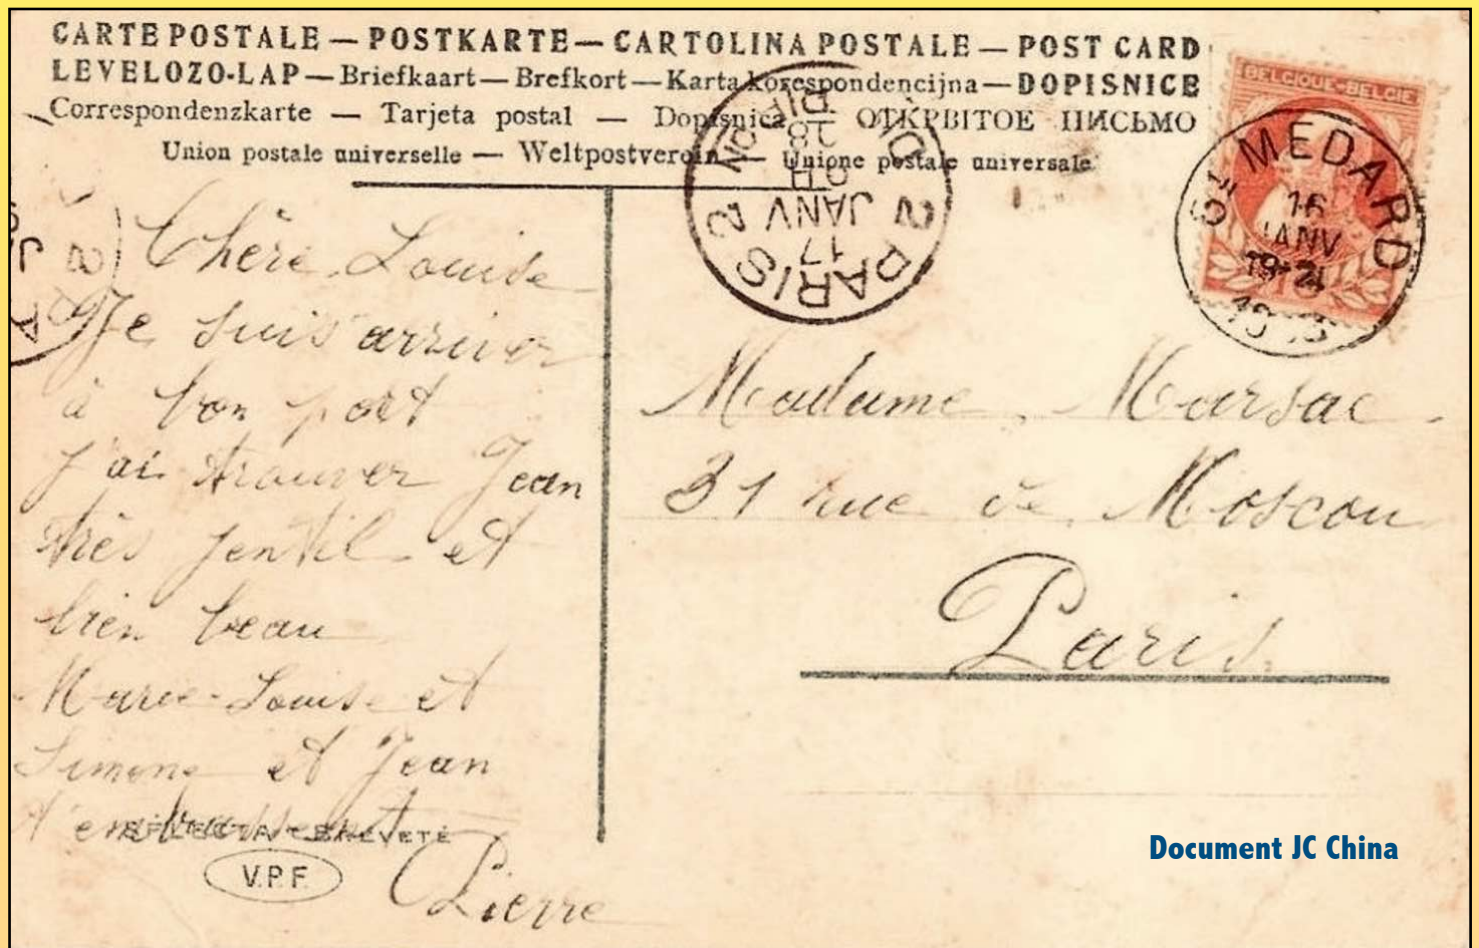 CARTE POSTALE — POSTKARTE — CARTOLINA POSTALE — POST CARD
LEVELOZO-LAP — Briefkaart — Brefkort — Karta korespondencijna — DOPISNICE
Correspondenzkarte — Tarjeta postal — Dopisnica — ОТКРВІТОЕ ПИСЬМО
Union postale universelle — Weltpostverein — Unione postale universale
BELGIQUE-BELGIE
St MEDARD
16
JANV
PARIS 2
17
JANV
Chère Louise
Je suis arriver
à bon port
j'ai trouver Jean
très jentil et
bien beau
Marie-Louise et
Simone et Jean
t'embrassent
Pierre
Madame Marsac
31 rue de Moscou
Paris
BREVETÉ
V.P.F.
Document JC China